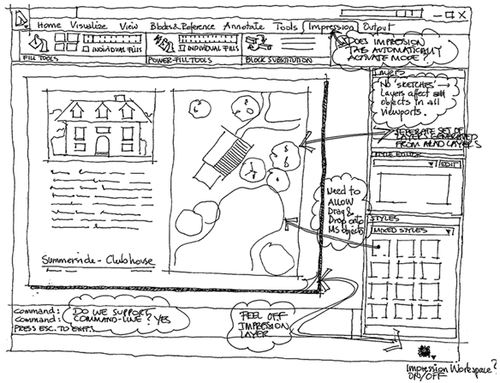 Home Visualize View Blocks & Reference Annotate Tools Impression Output
INDIVIDUAL FILLS
INDIVIDUAL FILLS
FILL TOOLS
POWER-FILL TOOLS
BLOCK SUBSTITUTION
DOES IMPRESSION
TAB AUTOMATICALLY
ACTIVATE MODE?
Layers
NO "SKETCHES" →
Layers affect all
objects in all
viewports.
SEPERATE SET OF
LAYERS GENERATED
FROM ACAD LAYERS
EDIT
Need to
ALLOW
Drag &
Drop onto
MS objects
STYLES
MIXED STYLES
Summerside - Clubhouse
Command:
Command:
PRESS ESC. TO EXIT.
DO WE SUPPORT
COMMAND-LINE? YES
PEEL OFF
IMPRESSION
LAYER
Impression Workspace?
ON/OFF